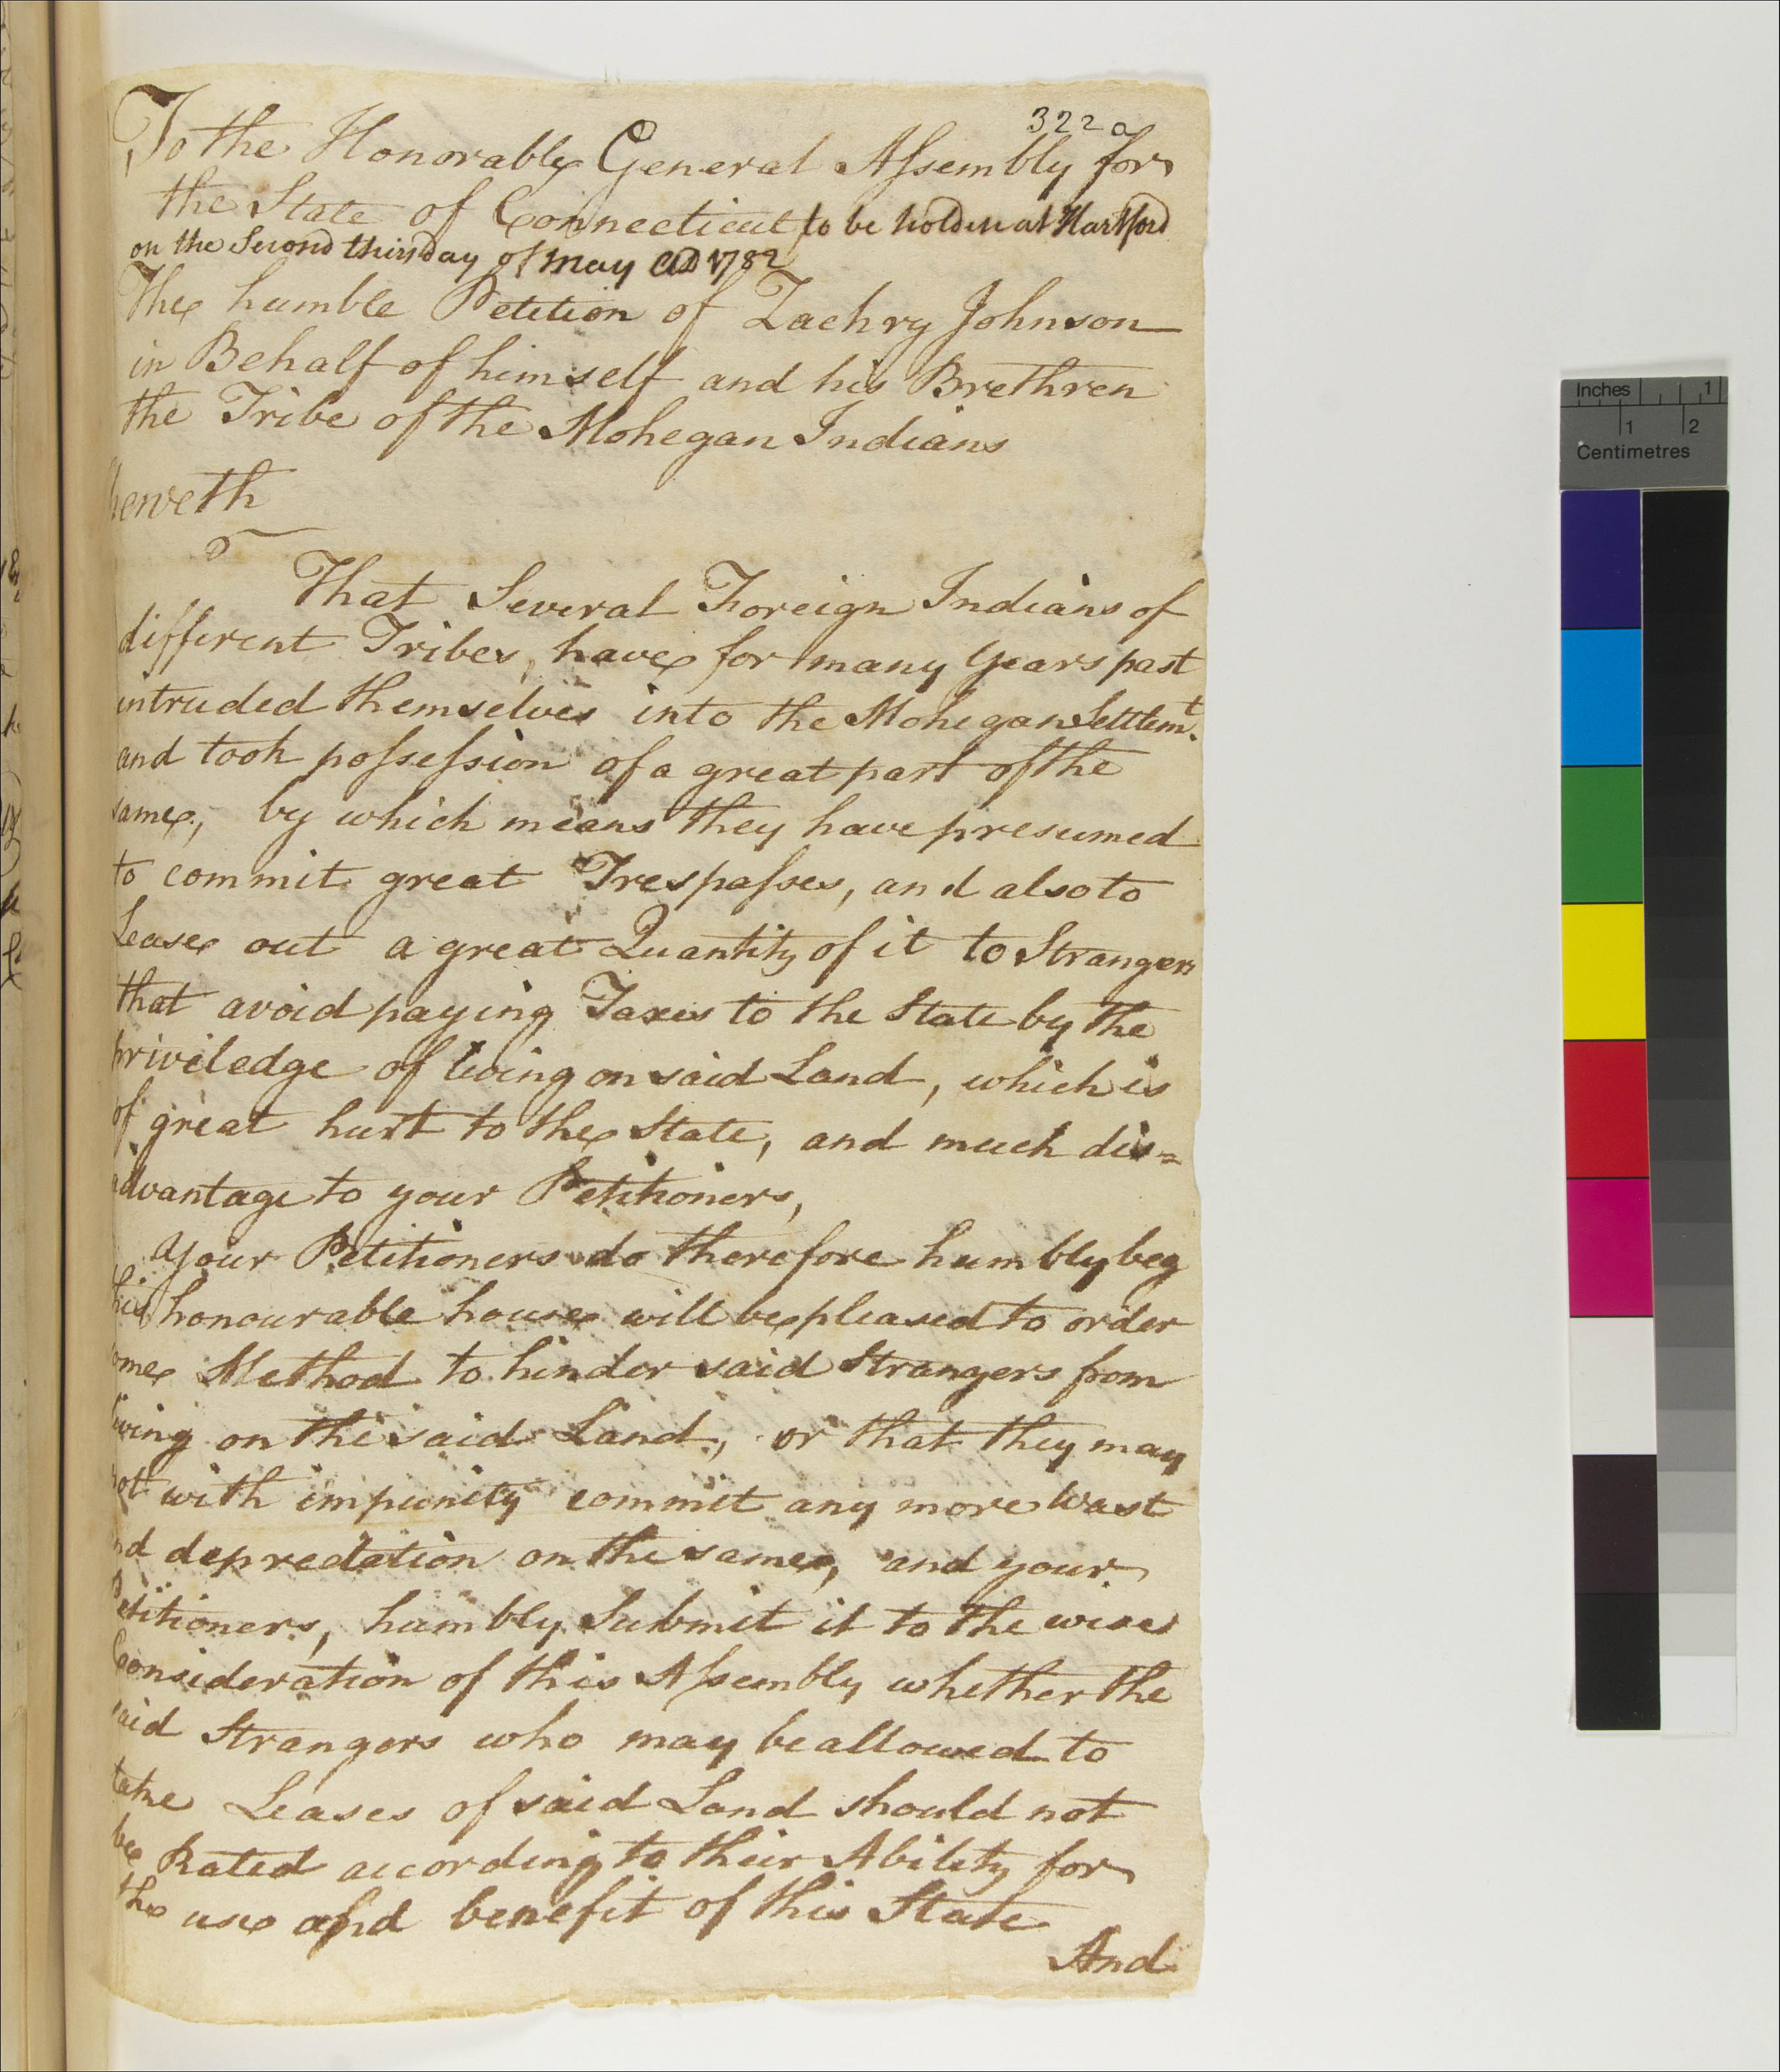 322a
To the Honorable General Assembly for
the State of Connecticut to be holden at Hartford
on the Second thursday of May AD 1782
The humble Petition of Zachry Johnson
in Behalf of himself and his Brethren
the Tribe of the Mohegan Indians
heweth
That Several Foreign Indians of
different Tribes, have for many Years past
intruded themselves into the Mohegan Settlemt.
and took possession of a great part of the
same, by which means they have presumed
to commit great Trespasses, and also to
Lease out a great Quantity of it to Strangers
that avoid paying Taxes to the State by the
priviledge of living on said Land, which is
of great hurt to the State, and much dis=
advantage to your Petitioners,
Your Petitioners do therefore humbly beg
this honourable house will be pleased to order
some Method to hinder said Strangers from
living on the said Land, or that they may
not with impunity commit any more Wast
nd depredation on the same, and your
Petitioners, humbly Submit it to the wise
Consideration of this Assembly whether the
said Strangers who may be allowed to
take Leases of said Land should not
be Rated according to their Ability for
the use and benefit of this State
And
Inches 1
1 2
Centimetres